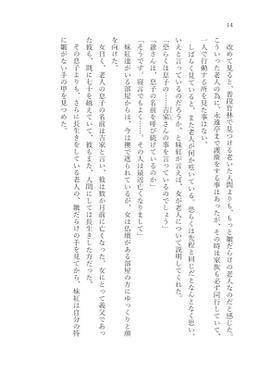 14
改めて見ると、普段竹林で見つける老いた人間よりも、もっと皺だらけの老人なのだと感じた。
こういった老人の為に、永遠亭まで護衛をする事はあったが、その時は家族も必ず同行していて、
一人で行動する所を見た事はない。
しばらく見ていると、また老人が何か呟いている。恐らくは先程と同じだとなんとなく思い、
「恐らくは息子の……吉家さんの事を言っているのでしょう」
いえと言っているのだろうか、と妹紅が言えば、女が老人について説明してくれた。
「爺さんは、息子の名前を呼び続けているのか」
「そうです。寝言でもよく……。その人は最近亡くなりまして」
妹紅達がいる部屋からは、今は襖で遮られているが、女は仏壇がある部屋の方にゆっくりと顔
を向けた。
女曰く、老人の息子の名前は吉家と言い、彼は数か月前に亡くなった。女にとって義父であっ
た彼も、既に七十を越えていて、彼もまた、人間にしては長生きした方だった。
その息子よりも、さらに長生きをしている老人の、皺だらけの手を見てから、妹紅は自分の特
に皺がない手の甲を見つめた。